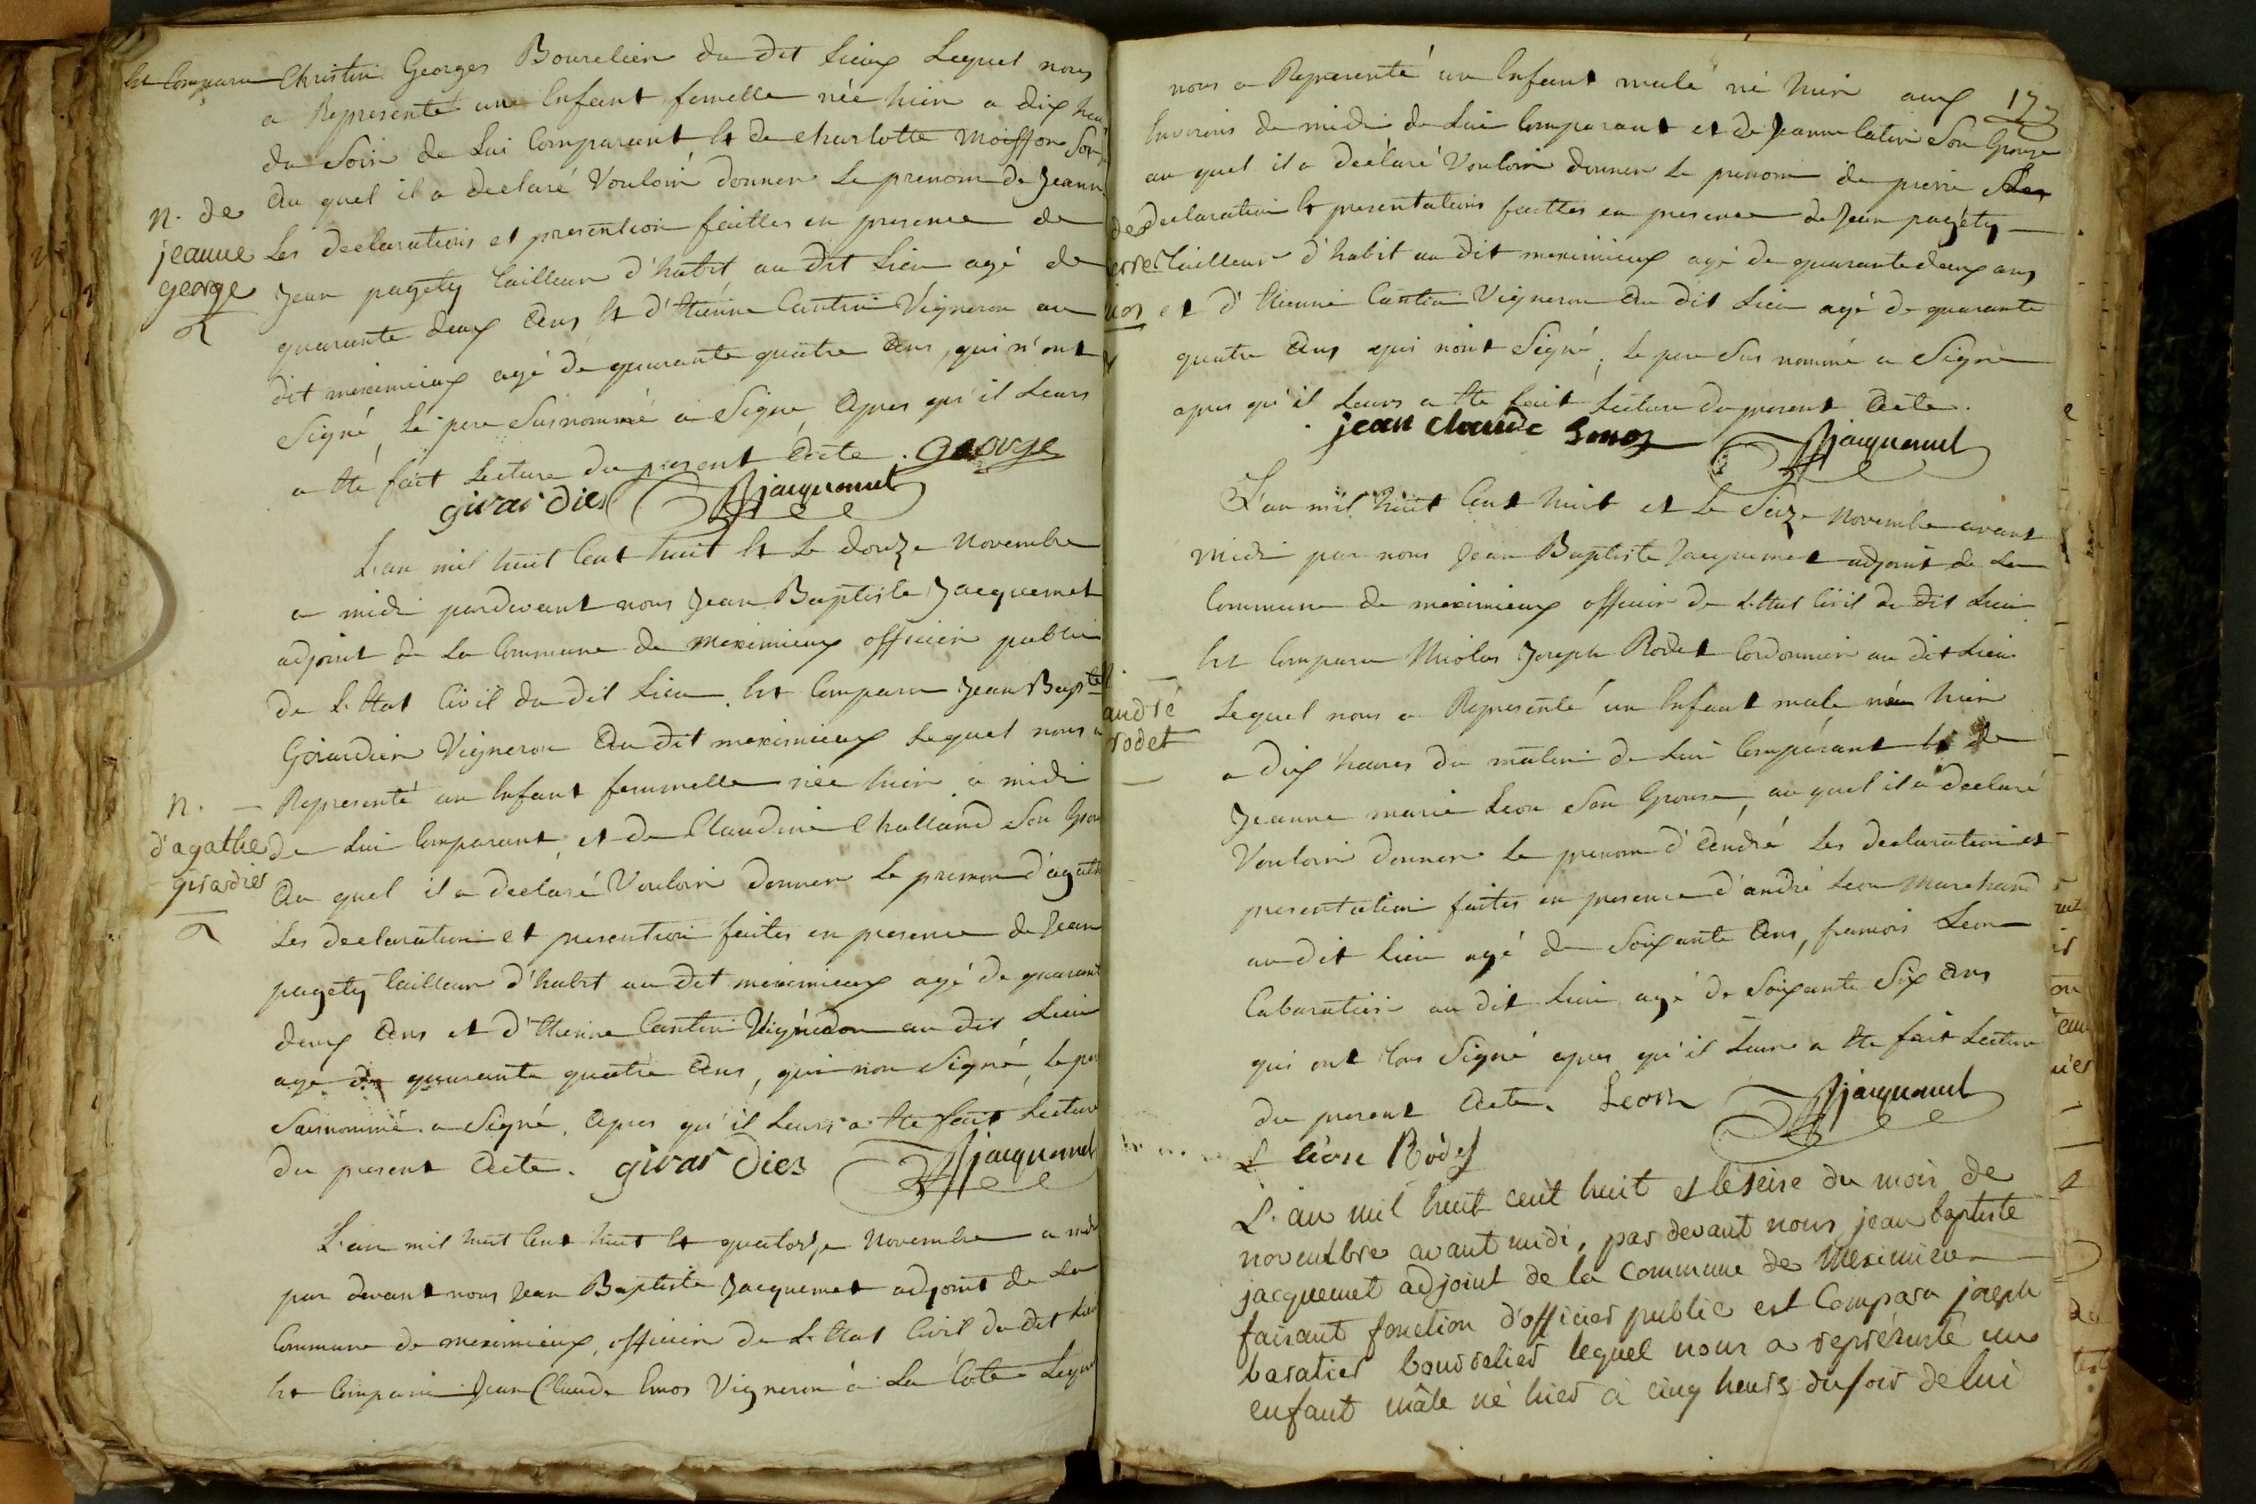 Est Comparu Christin Georges Bourelier du dit Lieux Lequel nous
a Representé une Enfant femelle née hier a dix heu
du Soir de Lui Comparant Et de Charlotte Moiffon Son
Au quel il a declaré Vouloir donner Le prenom de Jeann
N. de
jeanne
george
Les declarations et presention faittes en presence de
Jean pagéty tailleur d'habit au dit Lieu agé de
quarante deux Ans Et d'Etienne Cantin Vigneron au
dit meximieux agé de quarante quatre Ans, qui n'ont
Signé, Le pere Susnommé a Signé Apres qu'il Leurs
a été fait Lecture du present Acte. george
girardies JBjacquemet
L'an mil huit Cent huit Et Le douze Novembre
a midi pardevant nous Jean Baptiste Jacquemet
adjoint de La Commune de Meximieux officier public
de L'Etat Civil du dit Lieu Est Comparu Jean Bapte
Girardier Vigneron Au dit meximieux Lequel nous a
n.
d'agathe
girardier
Representé un Enfant femmelle née hier a midi
de Lui Comparant et de Claudine Challand Son Epou
Au quel il a declaré Vouloir donner Le prenom d'agath
Les declaration et presention faites en presence de Jean
pagety tailleur d'habit au dit meximieux agé de quarant
deux Ans et d'Etienne Cantin Vigneron au dit Lieu
age de quarante quatre Ans, qui non Signé, Le per
Susnommé a Signé, Apres qu'il Leurs a été fait Lecture
du present Acte. girardies JBjacquemet
L'an mil huit Cent huit Et quatorze Novembre a midi
par devant nous Jean Baptiste Jacquemet adjoint de La
Commune de meximieux, officier de L'Etat Civil du dit Lieu
Est Comparu Jean Claude Venos Vigneron à La Côte Lequel
177
nous a Representé un Enfant male né hier aux
Environs de midi de Lui Comparant et de Jeanne Catin Son Epouse
au quel il a declaré Vouloir donner Le prenom de pierre Les
declaration Et presentations faittes en presence de Jean pagéty
tailleur d'habit au dit meximieux agé de quarante deux ans
et d'Etienne Cantin Vigneron Au dit Lieu agé de quarante
quatre Ans qui n'ont Signé, Le pere Sus nommé a Signé
apres qu'il Leurs a été fait Lecture du present Acte.
jean claude JBjacquemet
L'an mil huit Cent huit et Le Seize Novembre avant
Midi par nous Jean Baptiste Jacquemet adjoint de La
Commune de meximieux officier de L'Etat Civil du dit Lieu
Est Comparu Nicolas Joseph Rodet Cordonnier au dit Lieu
andré
rodet
Lequel nous a Representé un Enfant male née hier
a dix heures du matin de Lui Comparant Et de
Jeanne marie Leon Son Epouse, au quel il a declaré
Vouloir donner Le prenom d'André Les declaration et
presentation faites en presence d'andré Leon Marchand
au dit Lieu agé de Soixante Ans, francois Leon
Cabaratier au dit Lieu agé de Soixante Six Ans
qui ont tous Signé apres qu'il Leurs a été fait Lecture
du present Acte. Leon JBjacquemet
L léon Rodet
L'an mil huit cent huit et le seise du mois de
novembre avant midi, par devant nous jean baptiste
jacquemet adjoint de la commune de Meximieu
faisant fonction d'officier public est Comparu joseph
baratier bourrelier lequel nous a représenté un
enfant mâle né hier à cinq heurs du soir de lui